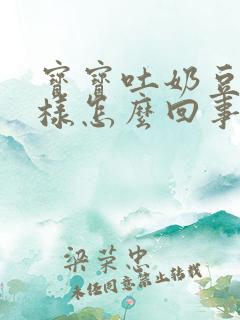 寶寶吐奶豆
樣怎麼回事
梁荣忠
未经同意禁止转载